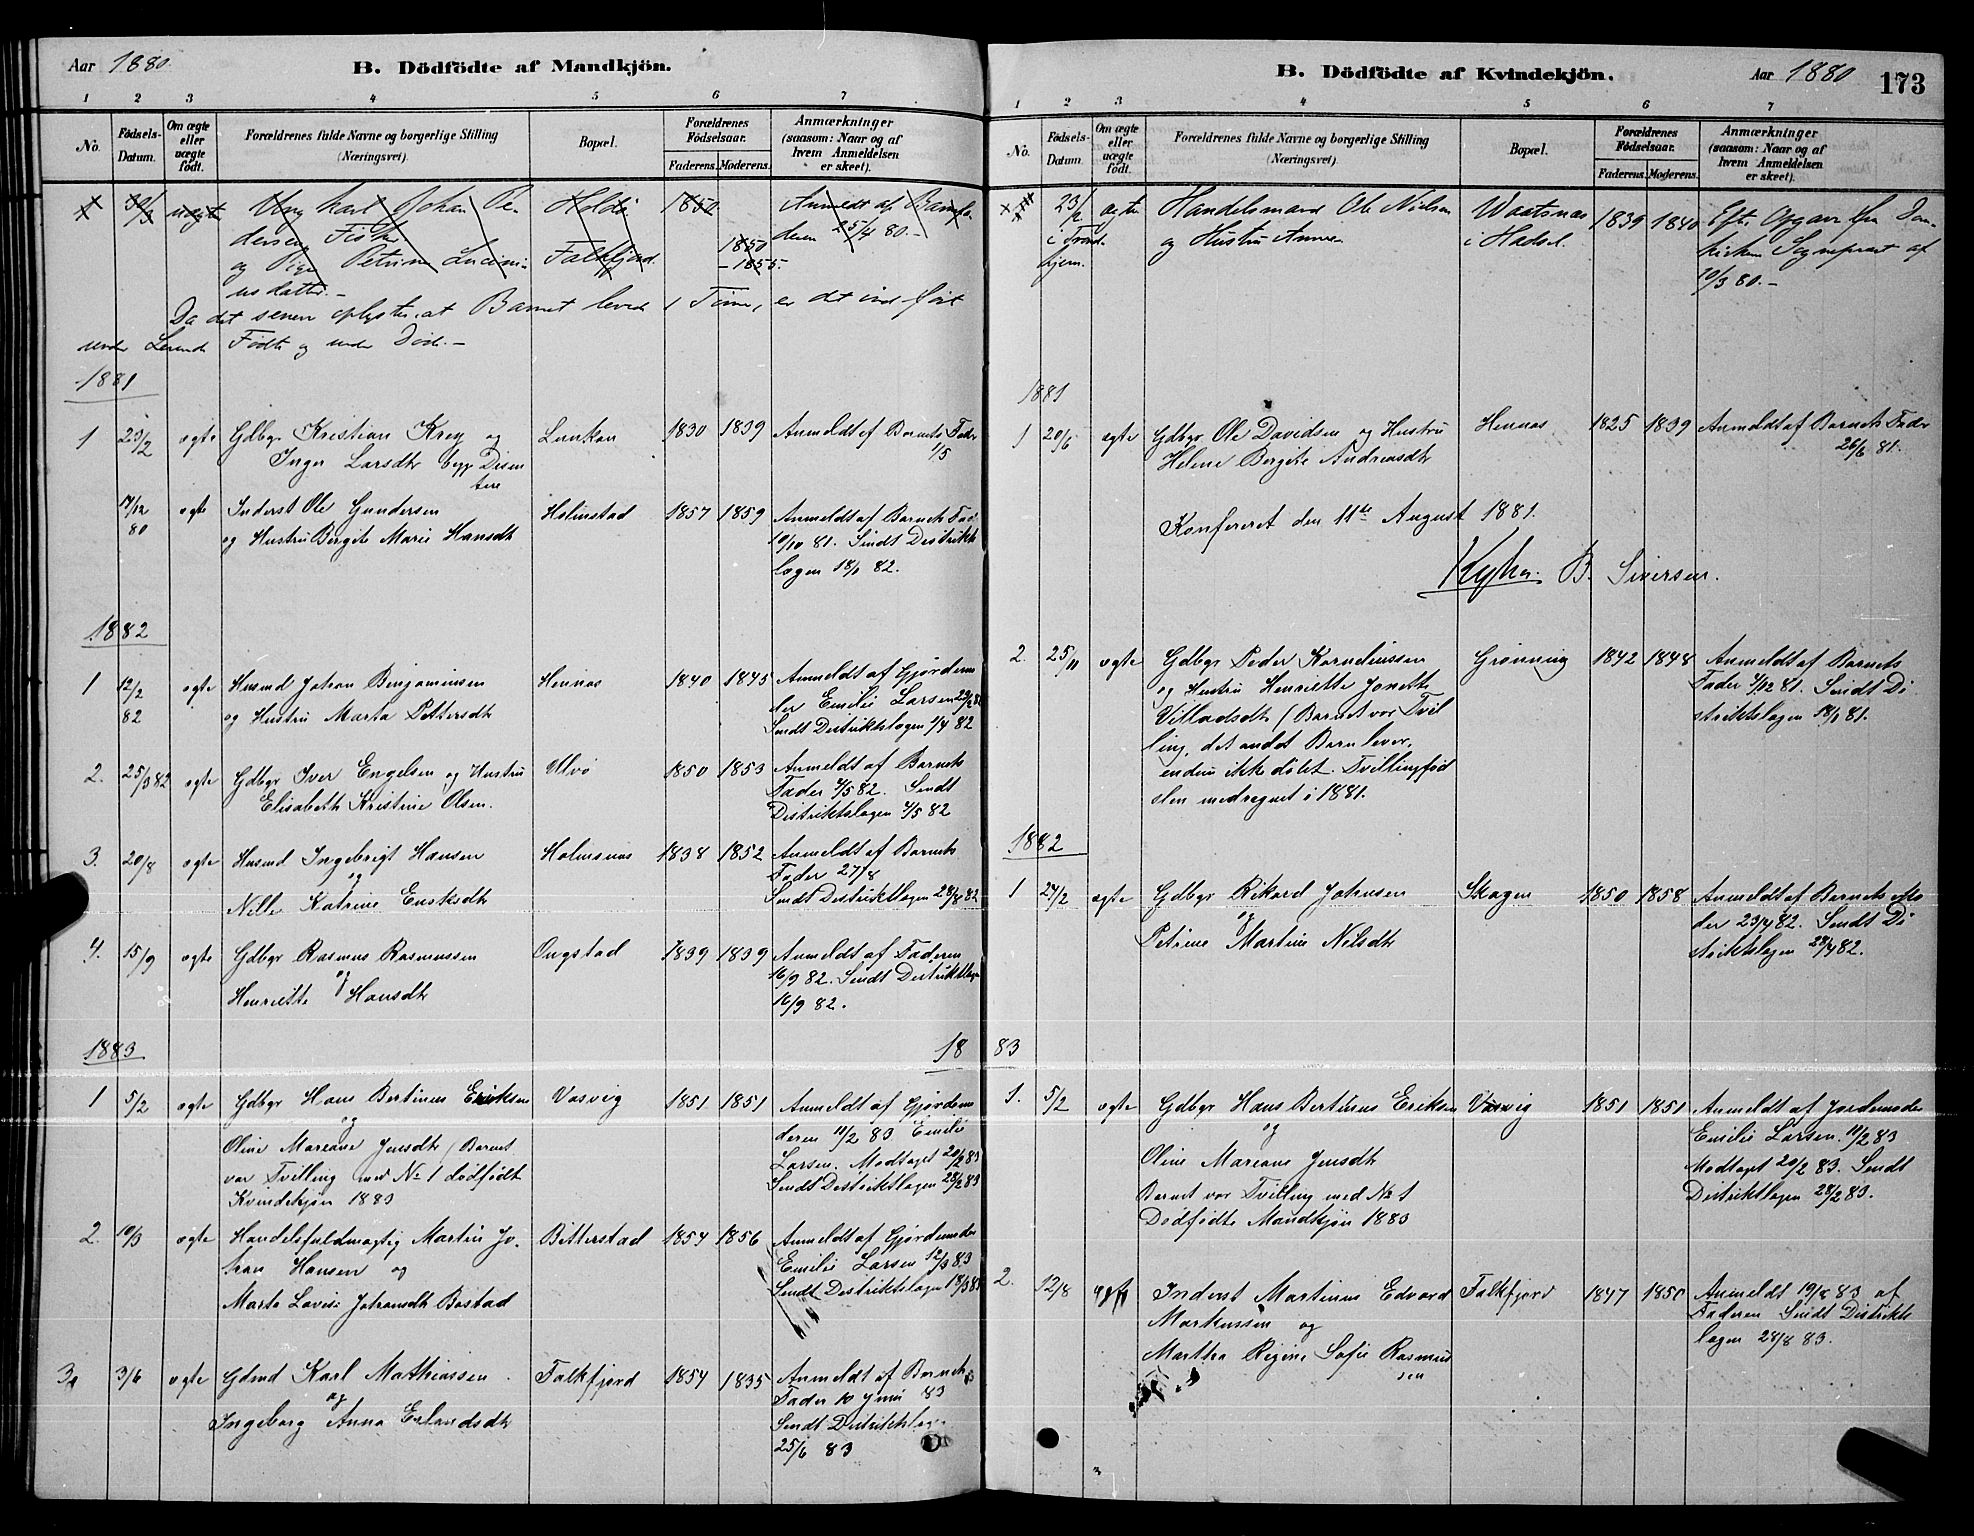 Aar 1880.
B. Dödfödte af Mandkjön.
1 2 3 4 5 6 7
No. Födsels-Datum. Om ægte eller uægte födt. Forældrenes fulde Navne og borgerlige Stilling (Næringsvei). Bopæl. Forældrenes Födselsaar. Faderens. Moderens. Anmærkninger (saasom: Naar og af hvem Anmeldelsen er skeet).
30/3 uægte Ung karl Johan Pe- Holdø 1850 Anmeldt af Barnefa-
dersen Fisker 1850 deren 25/4 80.-
og Pige Petrine Falkfjord. -1855.
usdatter.-
Da det senere oplystes, at Barnet levede 1 Time, er det ind ført
under Levende Fødte og under Døde.-
1881
1 23/2 ægte Gdbgr Kristian Krey og Lunkan 1830 1839 Anmeldt af Barnets Fader
Inger Larsdtr 1/5
17/12 ægte Inderst Ole Gundersen Holmstad 1857 1859 Anmeldt af Barnets Fad.
80 og Hustru Bergite Marie Hansdtr 19/10 81. Sendt Distrikts
lægen 18/1 82.
1882
1 12/2 ægte Husmd Johan Benjaminsen Hennes 1840 1845 Anmeldt af Gjordemo
82 og Hustru Marta Pettersdtr der Emilie Larsen 22/2 82
Sendt Distriktslægen 1/4 82
2. 25/3 82 ægte Gdbgr Iver Engelsen og Hustru Ulvø 1850 1853 Anmeldt af Barnets
Elisabeth Kristine Olsen. Fader 4/5 82. Sendt
Distriktslægen 4/5 82
3. 20/8 ægte Husmd Ingebrigt Hansen Holmsnes 1838 1852 Anmeldt af Barnets
og Fader 27/8
Nille Katrine Sendt Distriktslægen 28/8 82
4. 15/9 ægte Gdbgr Rasmus Rasmussen Ongstad 1839 1839 Anmeldt af Faderen
og 16/9 82. Sendt Distriktslægen
Henriette Hansdtr 16/9 82.
1883
1 5/2 ægte Gdbgr Hans Bertinus Eriksen Vasvig 1851 1851 Anmeldt af Gjordemo
og deren 11/2 83 Emilie
Oline Mariane Jensdtr (Barnet Larsen. Modtaget 20/2 83
var Tvilling med No 1 dödfödt Sendt Distriktslægen 28/2 83
Kvindekjøn 1883
2. 10/3 ægte Handelsfuldmægtig Martin Jo- Bitterstad 1854 1856 Anmeldt af Gjordemoder
han Hansen og Emilie Larsen 12/3 83
Marta Lovise Johansdtr Bostad Sendt Distriktslægen 18/3 83
3. 3/6 ægte Gdmd Karl Mathiassen Falkfjord 1854 1835 Anmeldt af Barnets
og Fader 10 Juni 83
Ingeborg Anna Erlandsdtr Sendt Distriktslægen
25/6 83
B. Dödfödte af Kvindekjön.
Aar 1880
173
1 2 3 4 5 6 7
No. Födsels-Datum. Om ægte eller uægte födt. Forældrenes fulde Navne og borgerlige Stilling (Næringsvei). Bopæl. Forældrenes Födselsaar. Faderens. Moderens. Anmærkninger (saasom: Naar og af hvem Anmeldelsen er skeet).
23/2 ægte Handelsmand Ole Nielsen 1839 1840 Efter Opgave fra Dom-
i Trond- og Hustru Anna i Hadsel. kirkens Sognepræst af
hjem. 19/3 80.-
1881
1 20/6 ægte Gdbgr Ole Davidsen og Hustru Hennes 1825 1839 Anmeldt af Barnets Fader
Helene Bergite Andreasdtr 26/6 81.
Konfereret den 11te August 1881.
B. Siversen.
2. 25/11 ægte Gdbgr Peder Kornelinssen Grønning 1842 1848 Anmeldt af Barnets
og Hustru Henriette Jonette Fader 4/12 81. Sendt Di
Villadsdtr (Barnet var Tvil striktslægen 18/1 81.
ling, det andet Barn lever,
endnu ikke döbt. Tvillingföd
slen medregnet i 1881.
1882
1 24/2 ægte Gdbgr Rikard Johnsen Skagen 1850 1858 Anmeldt af Barnets Mo
og der 23/4 82. Sendt Di
Petrine Martine Nilsdtr striktslægen 28/4 82.
1883
1. 5/2 ægte Gdbgr Hans Bertinus Eriksen Vasvig 1851 1851 Anmeldt af Jordemoder
og Emilie Larsen. 11/2 83
Oline Mariane Jensdtr Modtaget 20/2 83. Sendt
Barnet var Tvilling med No 1 Distriktslægen 28/2 83.
Dödfödte Mandkjön 1883
2. 12/8 ægte Inderst Martinus Edvard Falkfjord 1847 1851 Anmeldt 19/8 83 af
Markussen og Faderen Sendt Distrikts
Martha Regine Sofie Rasmus lægen 28/8 83.
sen